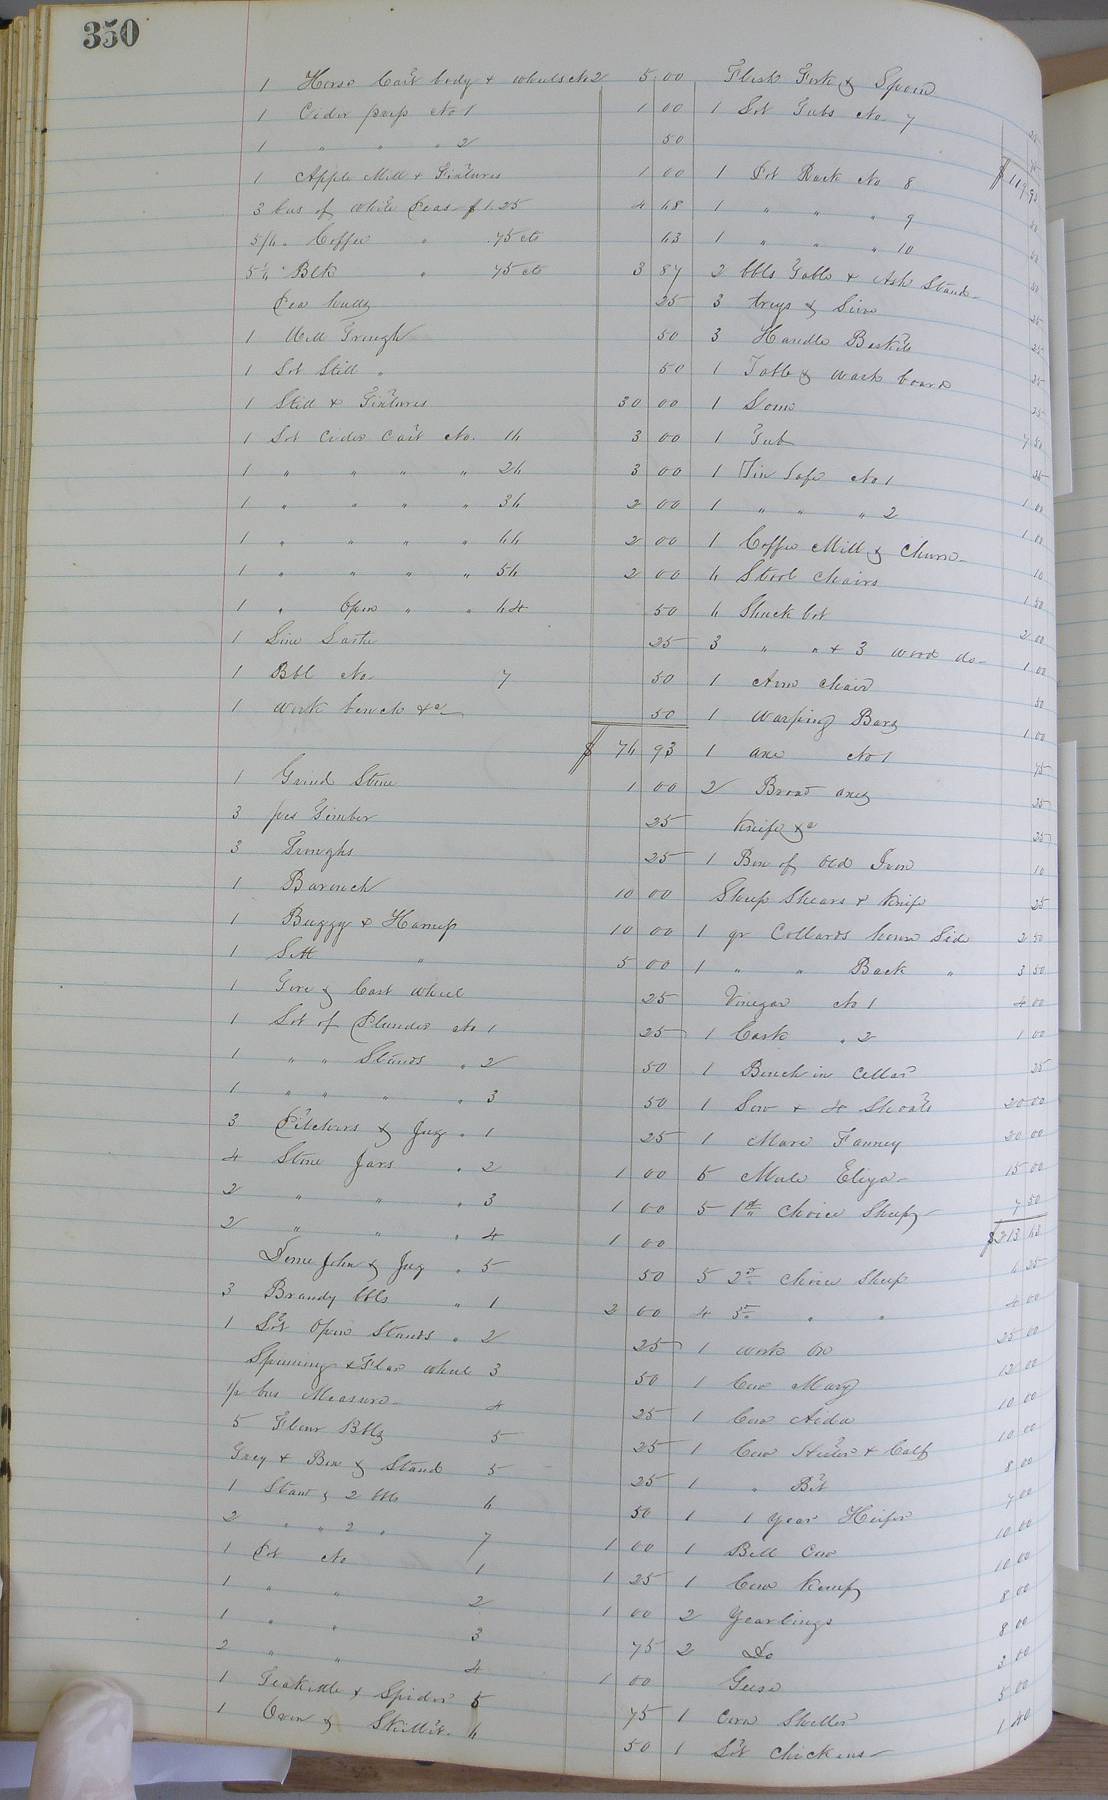 350
1 Horse Cart body & wheels No 2 5 00
1 Cider prep No 1 1 00
1 " " " 2 50
1 Apple Mill & Fixtures 1 00
3 bus of White Peas $1.25 4 68
5/6 " Coffee " .75 cts 63
5 1/6 " Blk " 75 cts 3 87
Pea hulls 25
1 Mill Trough 50
1 Lot Still " 50
1 Still & Fixtures 30 00
1 Lot Cider Cart No. 16 3 00
1 " " " " 26 3 00
1 " " " " 36 2 00
1 " " " " 46 2 00
1 " " " " 56 2 00
1 " Open " " 64 50
1 Lime 25
1 Bbl No 7 50
1 Work bench &c 50
$ 74 93
1 Grind Stone 1 00
3 pcs Timber 25
3 Troughs 25
1 Barouch 10 00
1 Buggy & Harness 10 00
1 Sett " 5 00
1 & Cart Wheel 25
1 Lot of Plunder No 1 25
1 " " Stands " 2 50
1 " " " " 3 50
3 Pitchers & Jug " 1 25
4 Stone Jars " 2 1 00
2 " " " 3 1 00
2 " " " 4 1 00
Deme John & Jug " 5 50
3 Brandy bbls " 1 2 00
1 Lot Open Stands " 2 25
Spinning & Flax wheel 3 50
1/2 bus Measure 4 25
5 Flour Bbls 5 25
Trey & Box & Stand 5 25
1 Stand & 2 bbls 6 50
2 " " 2 " 7 1 00
1 Pot No 1 1 25
1 " " 2 1 00
1 " " 3 75
2 " " 4 1 00
1 Teakettle & Spider 5 75
1 Oven & Skillet 6 50
Flesh Fork & Spoon 25
1 Lot Tubs No 7 75
$119 93
1 Pot Rack No 8 50
1 " " " 9 50
1 " " " 10 50
2 bbls Table & Ash Stand 25
3 treys & Sieve 25
3 Handle Baskets 25
1 Table & wash board 25
1 Loom 7 50
1 Tub 25
1 Tin Safe No 1 1 00
1 " " " 2 1 00
1 Coffee Mill & Churn 10
6 Stool Chairs 1 50
6 Shuck bot 2 00
3 " " & 3 wood do 1 00
1 Arm Chair 50
1 Warping Bars 1 00
1 axe No 1 75
2 Broad axes 25
Knife &c 25
1 Box of Old Iron 10
Sheep Shears & Knife 25
1 qr Collards house Side 2 50
1 " " Back " 3 50
Vinegar No 1 4 00
1 Cask " 2 1 00
1 Bench in Cellar 25
1 Sow & 4 Shoats 20 00
1 Mare Fanney 20 00
Mule Eliza 15 00
5 1st Choice Sheep 7 50
$213 63
5 2d Choice Sheep 6 25
4 " " 4 00
1 work Ox 25 00
1 Cow Mary 12 00
1 Cow Aida 10 00
1 Cow & Calf 10 00
1 " Bet 8 00
1 1 year Heifer 7 00
1 Bell Cow 10 00
1 Cow Kemp 10 00
2 Yearlings 8 00
2 Do 8 00
Geese 3 00
1 Corn Sheller 5 00
1 Lot Chickens 1 40